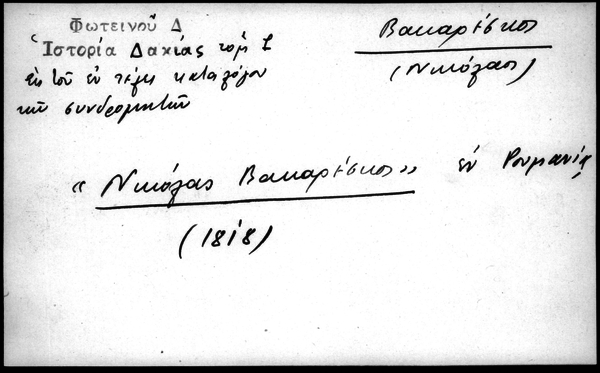 Φωτεινοῦ Δ
Ἱστορία Δακίας τομ
ἐκ τοῦ ἐν τέλει καταλόγου
τῶν συνδρομητῶν
Βακαρέσκος
(Νικόλαος)
«Νικόλαος Βακαρέσκος» ἐν Ρουμανίᾳ
(1818)